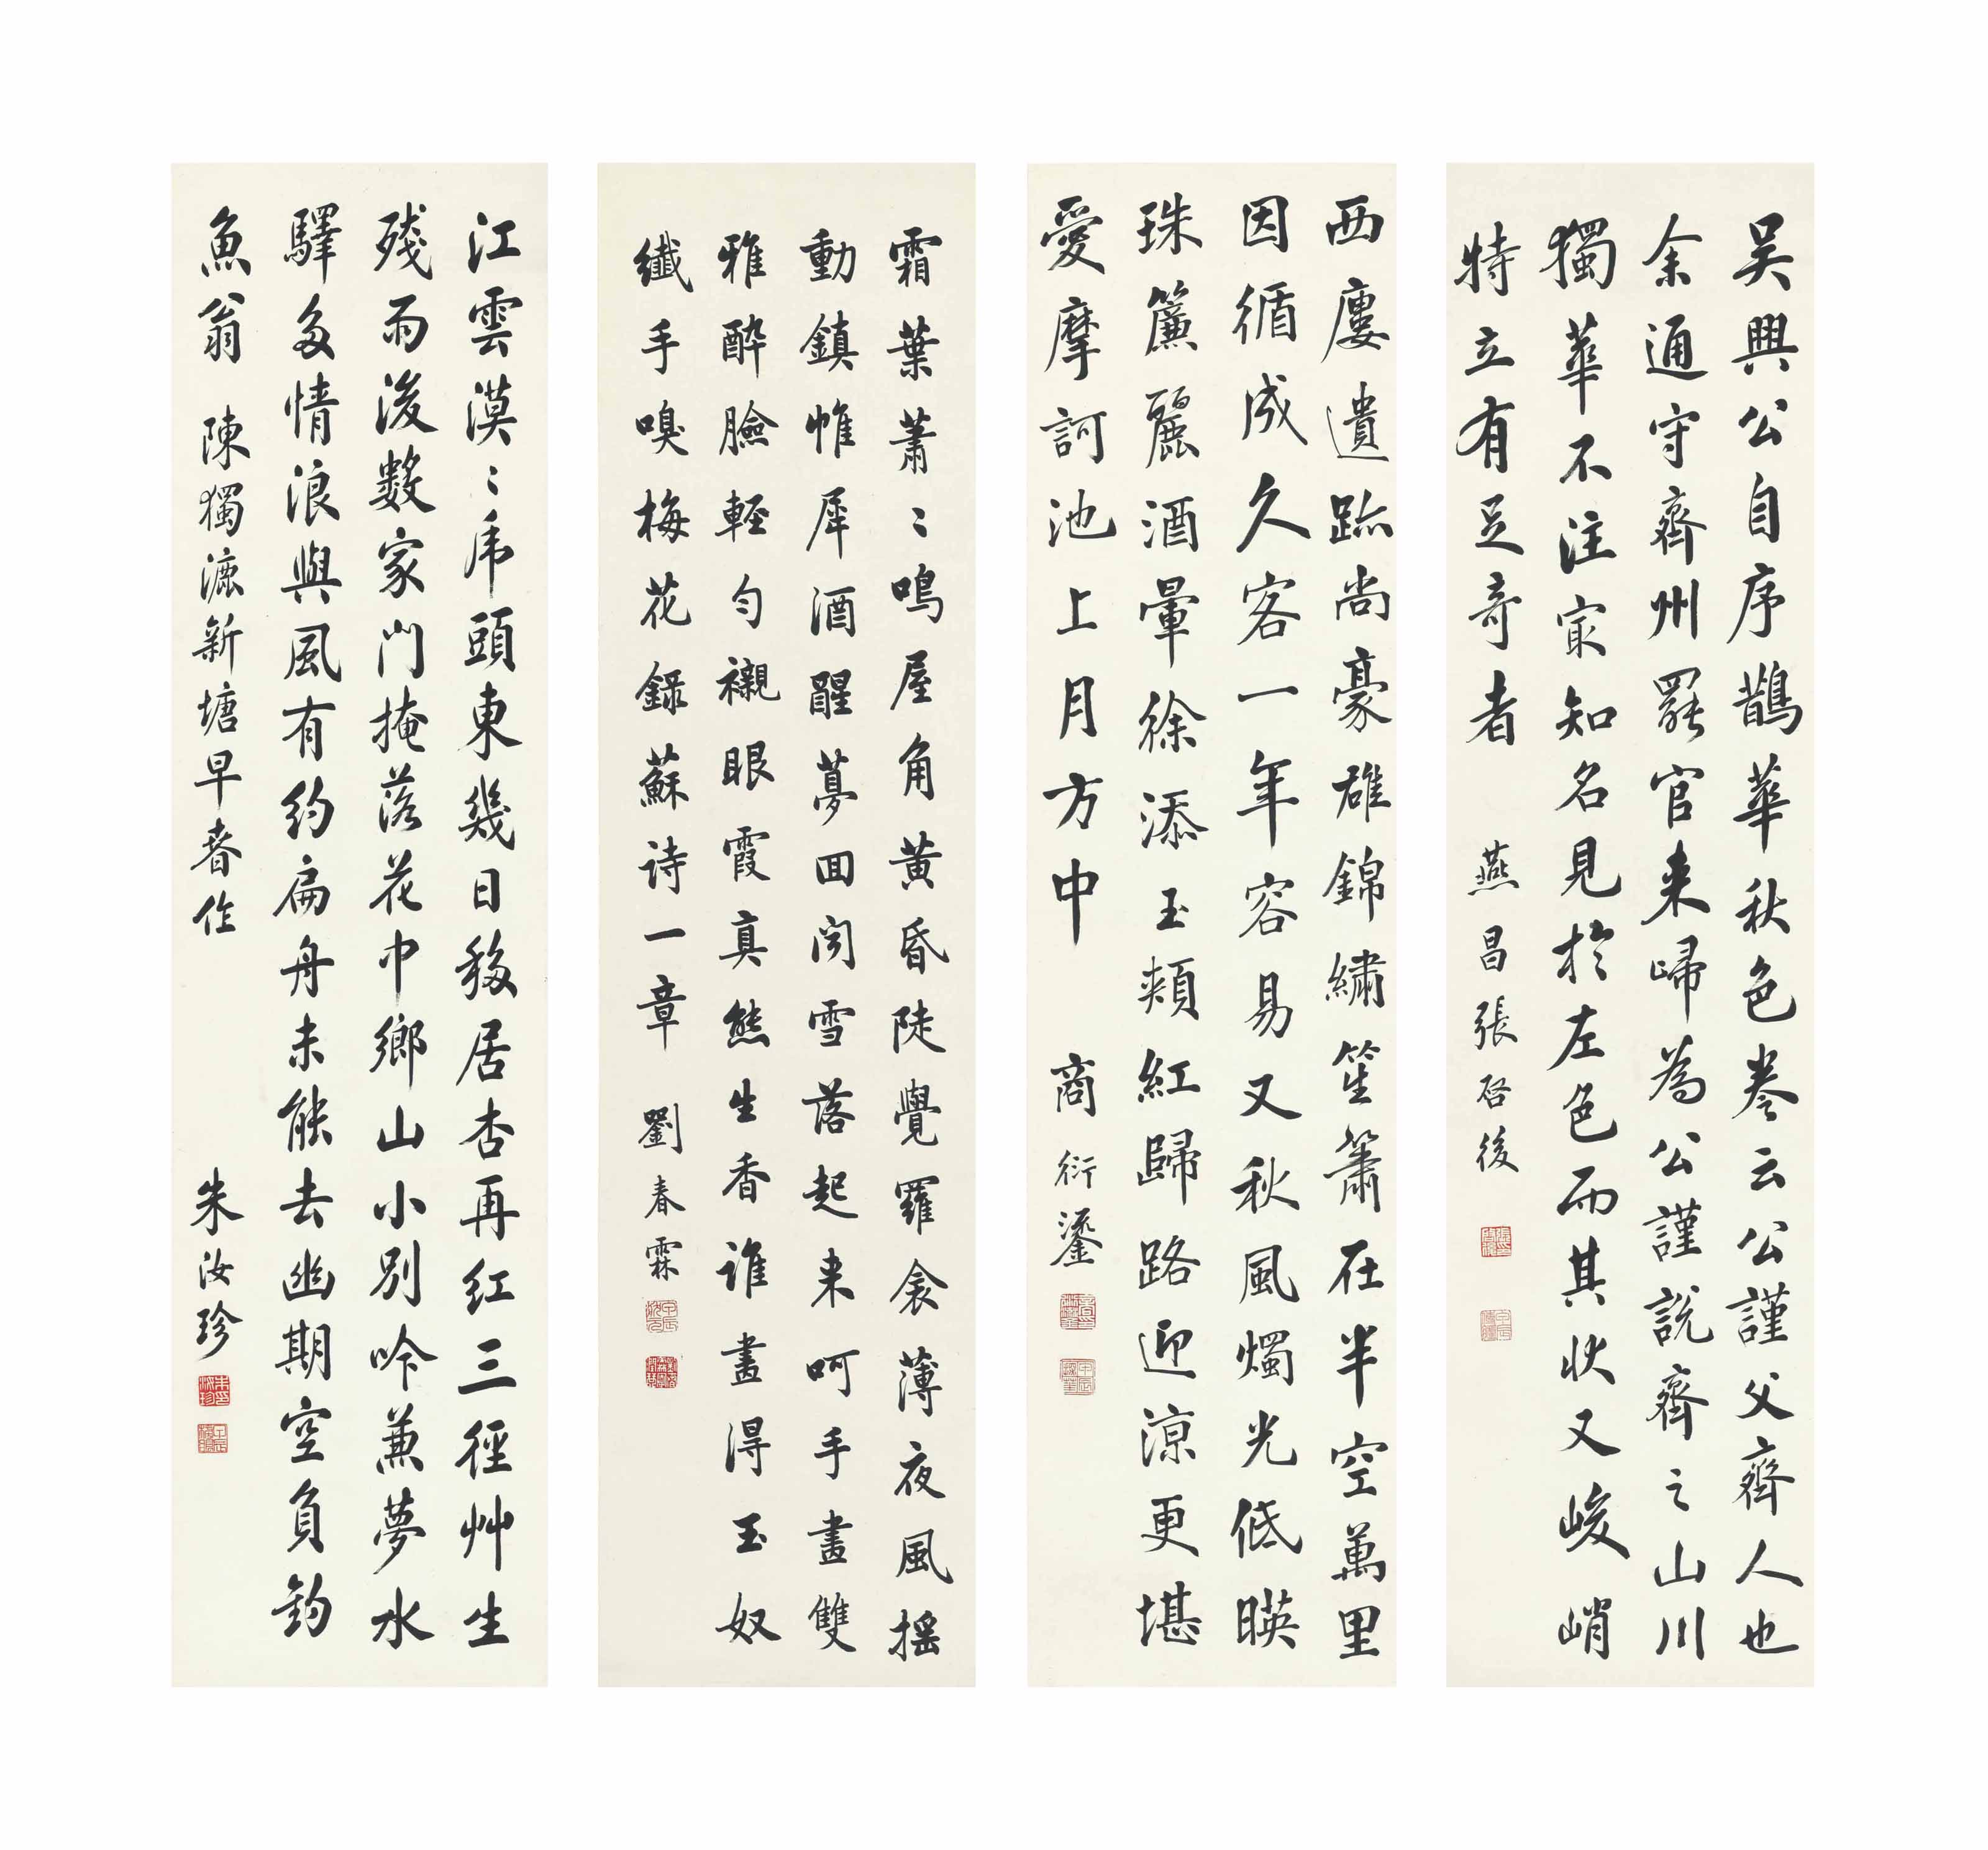 吳興公自序鵲華秋色卷云公謹父齊人也
余通守齊州罷官来歸為公謹說齊之山川
獨華不注㝡知名見於左色而其狀又峻峭
特立有足奇者
燕昌張啓後
西廔遺跡尚豪雄錦繡笙簫在半空萬里
因循成久客一年容易又秋風燭光低映
珠簾麗酒暈徐添玉頰紅歸路迎涼更堪
愛摩訶池上月方中
商衍鎏
霜葉蕭〻鳴屋角黃昏陡覺羅衾薄夜風搖
動鎮帷犀酒醒夢回閒雪落起来呵手畫雙
雅醉臉輕勻襯眼霞真態生香誰畫得玉奴
纖手嗅梅花錄蘇詩一章
劉春霖
江雲漠〻虎頭東幾日移居杏再紅三徑艸生
殘雨後數家門掩落花中鄉山小別吟兼夢水
驛多情浪與風有約扁舟未能去幽期空負釣
魚翁 陳獨漉新塘早春作
朱汝珍